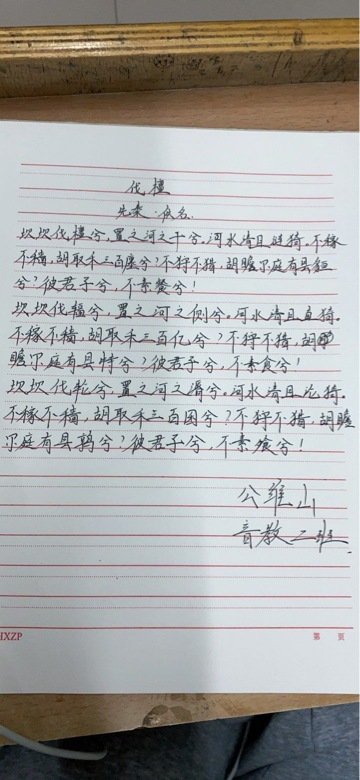 伐檀
先秦·佚名
坎坎伐檀兮,置之河之干兮,河水清且涟猗。不稼
不穑,胡取禾三百廛兮?不狩不猎,胡瞻尔庭有县貆
兮?彼君子兮,不素餐兮!
坎坎伐辐兮,置之河之侧兮。河水清且直猗。
不稼不穑,胡取禾三百亿兮?不狩不猎,胡
瞻尔庭有县特兮?彼君子兮,不素食兮!
坎坎伐轮兮,置之河之漘兮。河水清且沦猗。
不稼不穑,胡取禾三百囷兮?不狩不猎,胡瞻
尔庭有县鹑兮?彼君子兮,不素飧兮!
公维山
音教二班
HXZP
第 页